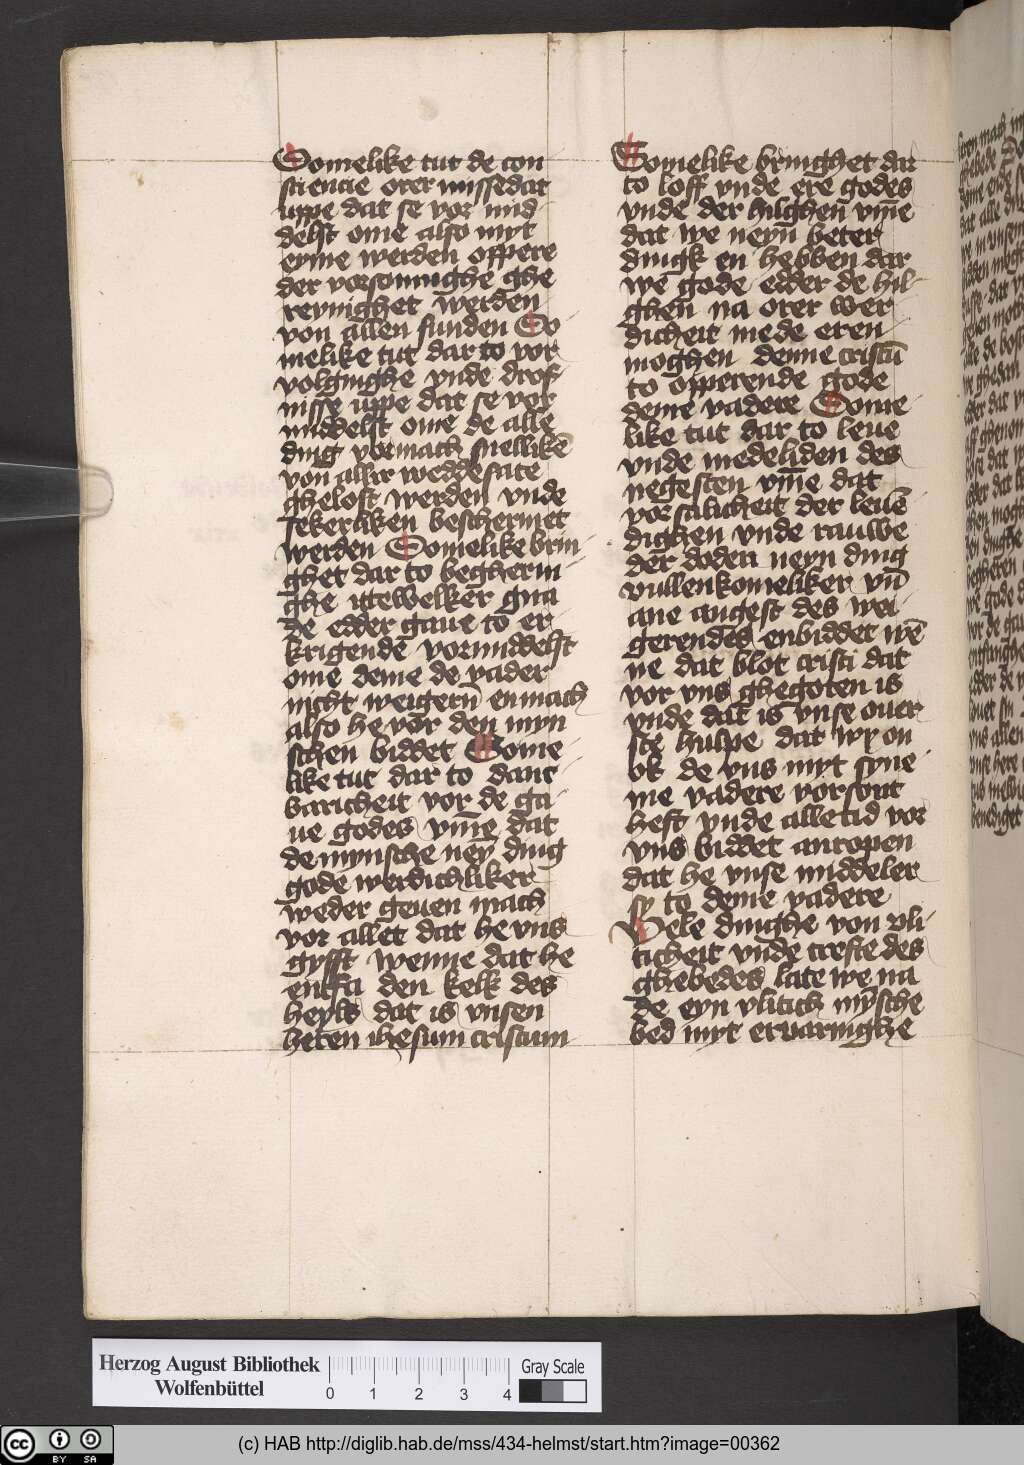 Somelike tut de con
sciencie orer missedat
uppe dat se vor mid
delst ome also myt
eyme werden offere
der vorsonninghe ghe
reynighet werden
von allen sunden So
melike tut dar to vor
volginghe vnde drof
nisse uppe dat se vor
middelst ome de alle
ding vormach snellikē
von aller weddesate
ghelost werden vnde
sekerliken beschermet
werden Somelike brin
ghet dar to begherin
ghe itewelker gna
de edder gaue to er
krigende vormiddelst
ome deme de vader
nicht weigern en mach
also he vor den myn
schen biddet Some
like tut dar to danc
baricheit vor de ga
ue godes vm̄e dat
de mynsche neyn ding
gode werdichliker
weder geuen mach
vor allet dat he vns
gyfft wenne dat he
entfa den kelk des
heyls dat is vnsen
heren ihesum cristum
Somelike bringhet dar
to loff vnde ere godes
vnde der hilghen vm̄e
dat we neyn beter
dingk en hebben dar
we gode edder de hil
ghen na orer wer
dicheit mede eren
moghen denne cristū
to opperende gode
deme vadere Some
like tut dar to leue
vnde medeliden des
negesten vm̄e dat
vor salicheit der leuē
dighen vnde rauwe
der doden neyn ding
vullenkomeliker vn̄
ane angest des wei
gerendes enbiddet wē
ne dat blot cristi dat
vor vns ghegoten is
vnde dat is vnse ouer
ste hulpe dat wy on
ok de vns myt syne
me vadere vorsont
heft vnde alletid vor
vns biddet anropen
dat he vnse middeler
sy to deme vadere
Wele dinghe von vli
ticheit vnde crefte des
ghebedes late we na
de eyn vlitich mȳsche
bed myt ervaringhe
Herzog August Bibliothek
Wolfenbüttel
0 1 2 3 4
Gray Scale
(c) HAB http://diglib.hab.de/mss/434-helmst/start.htm?image=00362